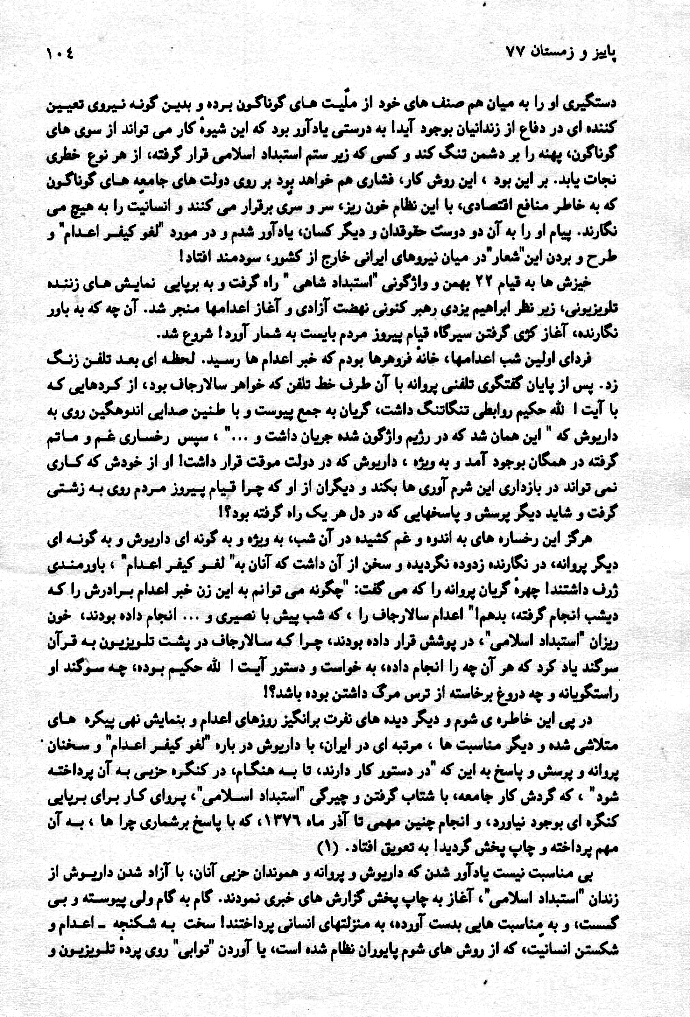 پاییز و زمستان ۷۷
۱۰٤
دستگیری او را به میان هم صنف های خود از ملّیت های گوناگون برده و بدین گونه نیروی تعیین
کننده ای در دفاع از زندانیان بوجود آید! به درستی یادآور بود که این شیوهٔ کار می تواند از سوی های
گوناگون، پهنه را بر دشمن تنگ کند و کسی که زیر ستم استبداد اسلامی قرار گرفته، از هر نوع خطری
نجات یابد. بر این بود ، این روش کار، فشاری هم خواهد بود بر روی دولت های جامعه های گوناگون
که به خاطر منافع اقتصادی، با این نظام خون ریز، سر و سری برقرار می کنند و انسانیت را به هیچ می
نگارند. پیام او را به آن دو دوست حقوقدان و دیگر کسان، یادآور شدم و در مورد "لغو کیفر اعدام" و
طرح و بردن این"شعار"در میان نیروهای ایرانی خارج از کشور، سودمند افتاد!
خیزش ها به قیام ۲۲ بهمن و واژگونی "استبداد شاهی " راه گرفت و به برپایی نمایش های زننده
تلویزیونی، زیر نظر ابراهیم یزدی رهبر کنونی نهضت آزادی و آغاز اعدامها منجر شد. آن چه که به باور
نگارنده، آغاز کژی گرفتن سیرگاه قیام پیروز مردم بایست به شمار آورد! شروع شد.
فردای اولین شب اعدامها، خانهٔ فروهرها بودم که خبر اعدام ها رسید. لحظه ای بعد تلفن زنگ
زد. پس از پایان گفتگوی تلفنی پروانه با آن طرف خط تلفن که خواهر سالارجاف بود، از کردهایی که
با آیت ا لله حکیم روابطی تنگاتنگ داشت، گریان به جمع پیوست و با طنین صدایی اندوهگین روی به
داریوش که " این همان شد که در رژیم واژگون شده جریان داشت و ..." ، سپس رخساری غم و ماتم
گرفته در همگان بوجود آمد و به ویژه ، داریوش که در دولت موقت قرار داشت! او از خودش که کاری
نمی تواند در بازداری این شرم آوری ها بکند و دیگران از او که چرا قیام پیروز مردم روی به زشتی
گرفت و شاید دیگر پرسش و پاسخهایی که در دل هر یک راه گرفته بود؟!
هرگز این رخساره های به اندوه و غم کشیده در آن شب، به ویژه و به گونه ای داریوش و به گونه ای
دیگر پروانه، در نگارنده زدوده نگردیده و سخن از آن داشت که آنان به" لغو کیفر اعدام" ، باورمندی
ژرف داشتند! چهرهٔ گریان پروانه را که می گفت: "چگونه می توانم به این زن خبر اعدام برادرش را که
دیشب انجام گرفته، بدهم!" اعدام سالارجاف را ، که شب پیش با نصیری و ... انجام داده بودند، خون
ریزان "استبداد اسلامی"، در پوشش قرار داده بودند، چرا که سالارجاف در پشت تلویزیون به قرآن
سوگند یاد کرد که هر آن چه را انجام داده، به خواست و دستور آیت ا لله حکیم بوده، چه سوگند او
راستگویانه و چه دروغ برخاسته از ترس مرگ داشتن بوده باشد؟!
در پی این خاطره ی شوم و دیگر دیده های نفرت برانگیز روزهای اعدام و بنمایش نهی پیکره های
متلاشی شده و دیگر مناسبت ها ، مرتبه ای در ایران، با داریوش در باره "لغو کیفر اعدام" و سخنان
پروانه و پرسش و پاسخ به این که "در دستور کار دارند، تا به هنگام، در کنگره حزبی به آن پرداخته
شود" ، که گردش کار جامعه، با شتاب گرفتن و چیرگی "استبداد اسلامی"، پروای کار برای برپایی
کنگره ای بوجود نیاورد، و انجام چنین مهمی تا آذر ماه ۱۳۷۶، که با پاسخ برشماری چرا ها ، به آن
مهم پرداخته و چاپ پخش گردید! به تعویق افتاد. (۱)
بی مناسبت نیست یادآور شدن که داریوش و پروانه و هموندان حزبی آنان، با آزاد شدن داریوش از
زندان "استبداد اسلامی"، آغاز به چاپ پخش گزارش های خبری نمودند. گام به گام ولی پیوسته و بی
گسست، و به مناسبت هایی بدست آورده، به منزلتهای انسانی پرداختند! سخت به شکنجه ـ اعدام و
شکستن انسانیت، که از روش های شوم پایوران نظام شده است، یا آوردن "توابی" روی پردهٔ تلویزیون و